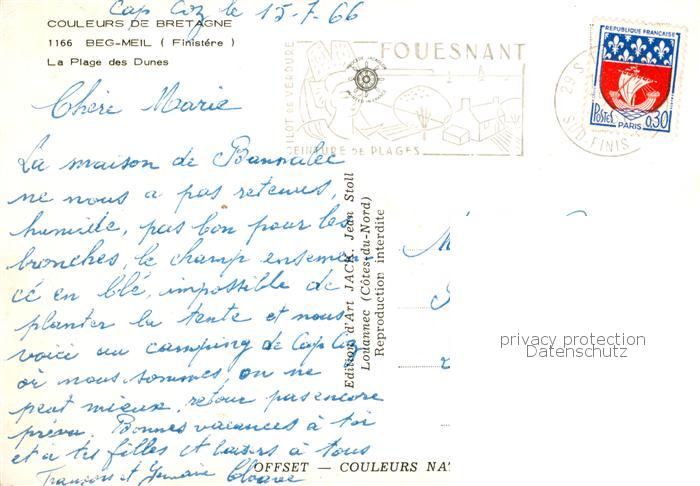 Cap Coz le 15-7-66
COULEURS DE BRETAGNE
1166 BEG-MEIL ( Finistére )
La Plage des Dunes
ILOT DE VERDURE
FOUESNANT
CEINTURE DE PLAGES
29 S
SUD FINIS
REPUBLIQUE FRANÇAISE
POSTES
0,30
PARIS
Chère Marie
La maison de Bannalec
ne nous a pas retenus,
humide, pas bon pour les
bronches, le champ ensemen-
cé en blé, impossible de
planter la tente et nous
voici au camping de Cap Coz
où nous sommes, on ne
peut mieux, retour pas encore
prévu. Bonnes vacances à toi
et à tes filles et baisers à tous
François et Germaine
Edition d'Art JACK, Jean Stoll
Louannec (Côtes-du-Nord)
Reproduction interdite
OFFSET — COULEURS NA
privacy protection
Datenschutz